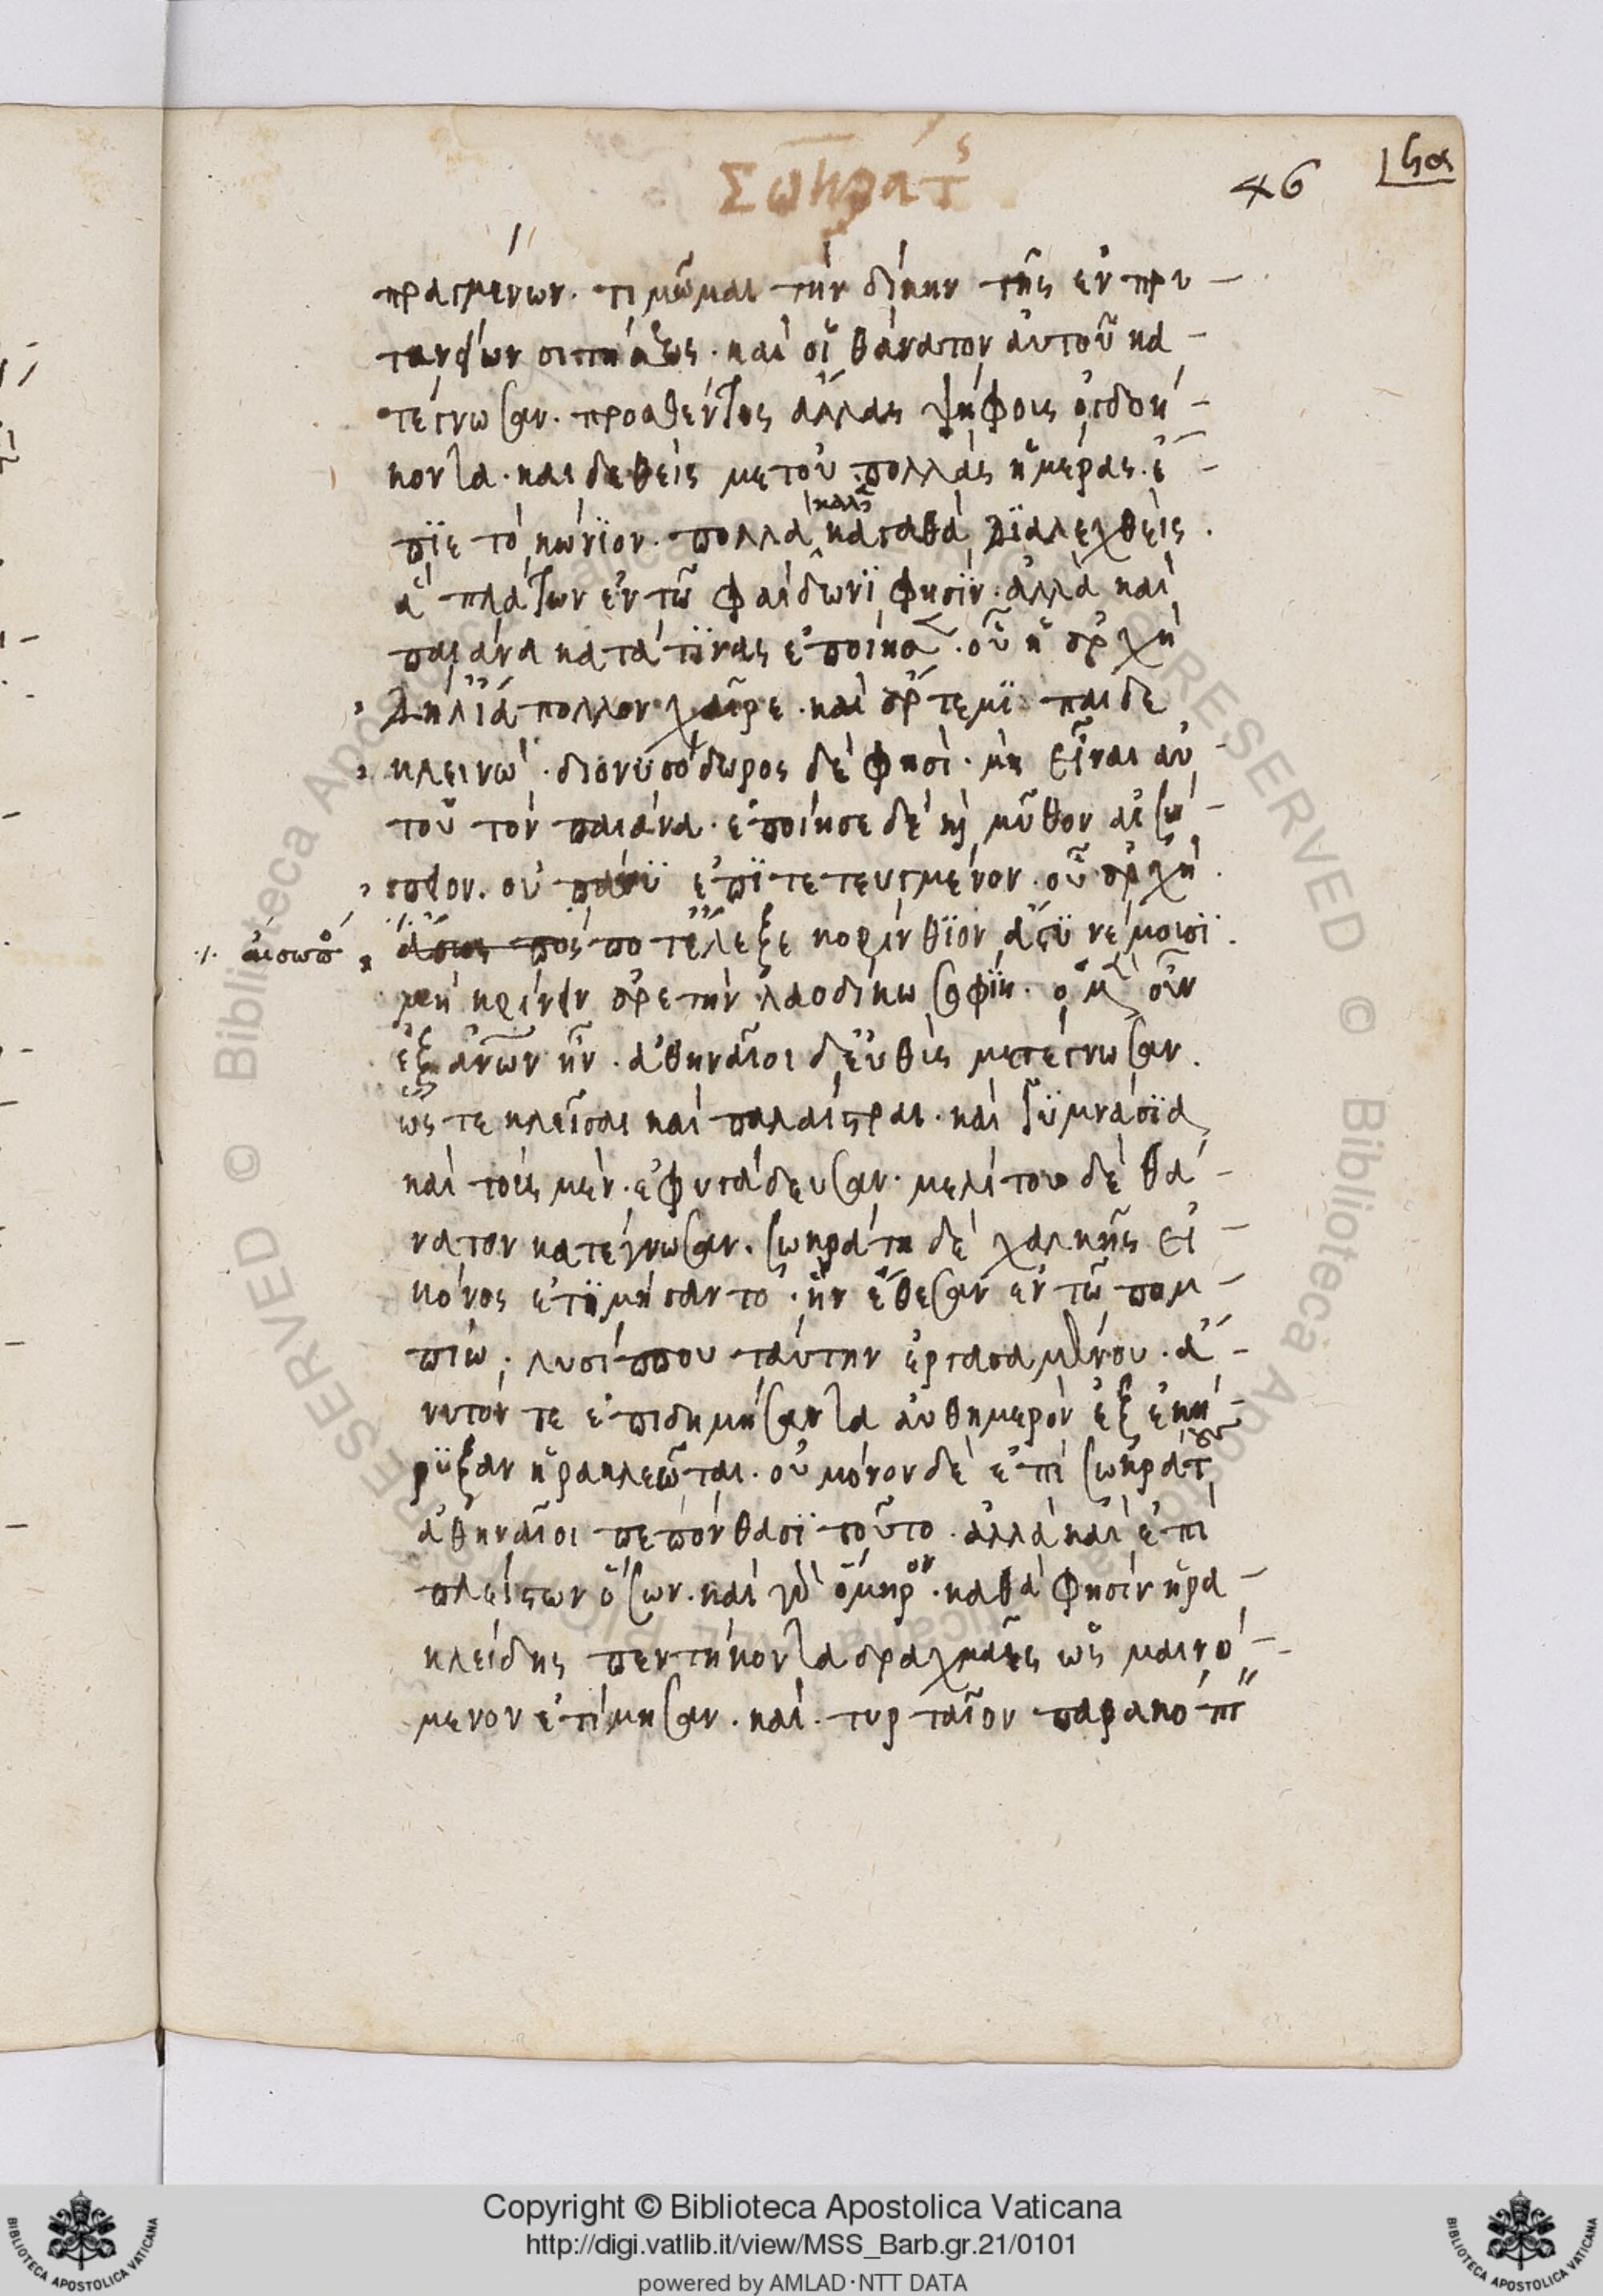 Σωκράτ(ης)
46
ϟα
πραγμένων. τιμῶμαι τὴν δίκην τῆς ἐν πρυ-
τανείων σιτήσεως. καὶ οἳ θάνατον ἀυτοῦ κα-
τέγνωσαν. προσθέντες ἄλλας ψήφοις ὀγδοή-
κοντα. καὶ δεθεὶς μετοὐ πολλὰς ἡμέρας. ἔ-
πϊε τὸ κώνϊον. πολλὰ καλὰ κἀγαθὰ δϊαλεχθεὶς.
ἃ πλάτων ἐν τῶ φαίδωνϊ φησϊν. ἀλλὰ καὶ
παιάνα κατά τϊνας ἐποίησε. οὗ ἡ ἀρχὴ
δήλϊ ἄπολλον χαῖρε. καὶ ἄρτεμϊ παῖδε
κλεινώ. διονυσόδωρος δέ φησι. μὴ εἶναι αὐ
τοῦ τὸν παιάνα. ἐποίησε δὲ καὶ μῦθον αἰσώ-
πειον. οὐ πάνϋ ἐπϊτετευγμένον. οὗ ἀρχὴ.
./. ἄισωπο
πότ' ἔλεξε κορίνθϊον ἄστϋ νέμοισϊ.
μὴ κρίνειν ἀρετὴν λαοδίκω σοφϊη. ὁ μὲν οὖν
ἐξ ἀνῶν ἦν. ἀθηναῖοι δ' ἐυθὶς μετέγνωσαν.
ὥς τε κλεῖσαι καὶ παλαίστραι. καὶ γϋμνάσϊα
καὶ τοὺς μὲν. ἐφυγάδευσαν. μελίτου δὲ θά-
νατον κατέγνωσαν. σωκράτη δὲ χαλκῆς εἰ-
κόνος ἐτϊμήσαντο. ἣν ἔθεσαν ἐν τῶ πομ-
πίω. λυσίππου ταύτην ἐργασαμένου. ἄ-
νυτόν τε ἐπιδημήσαντα ἀυθημερὸν ἐξεκή-
ρϋξαν ἡρακλεῶται. οὐ μόνον δὲ ἐπὶ σωκράτους
ἀθηναῖοι πεπόνθασϊ τοῦτο. ἀλλὰ καὶ ἐπὶ
πλείστων ὅσων. καὶ γὰρ ὅμηρον. καθά φησιν ἡρα-
κλείδης πεντήκοντα δραχμαῖς ὡς μαινό-
μενον ἐτίμησαν. καὶ τυρταῖον παρακόπτ
Copyright © Biblioteca Apostolica Vaticana
http://digi.vatlib.it/view/MSS_Barb.gr.21/0101
powered by AMLAD·NTT DATA